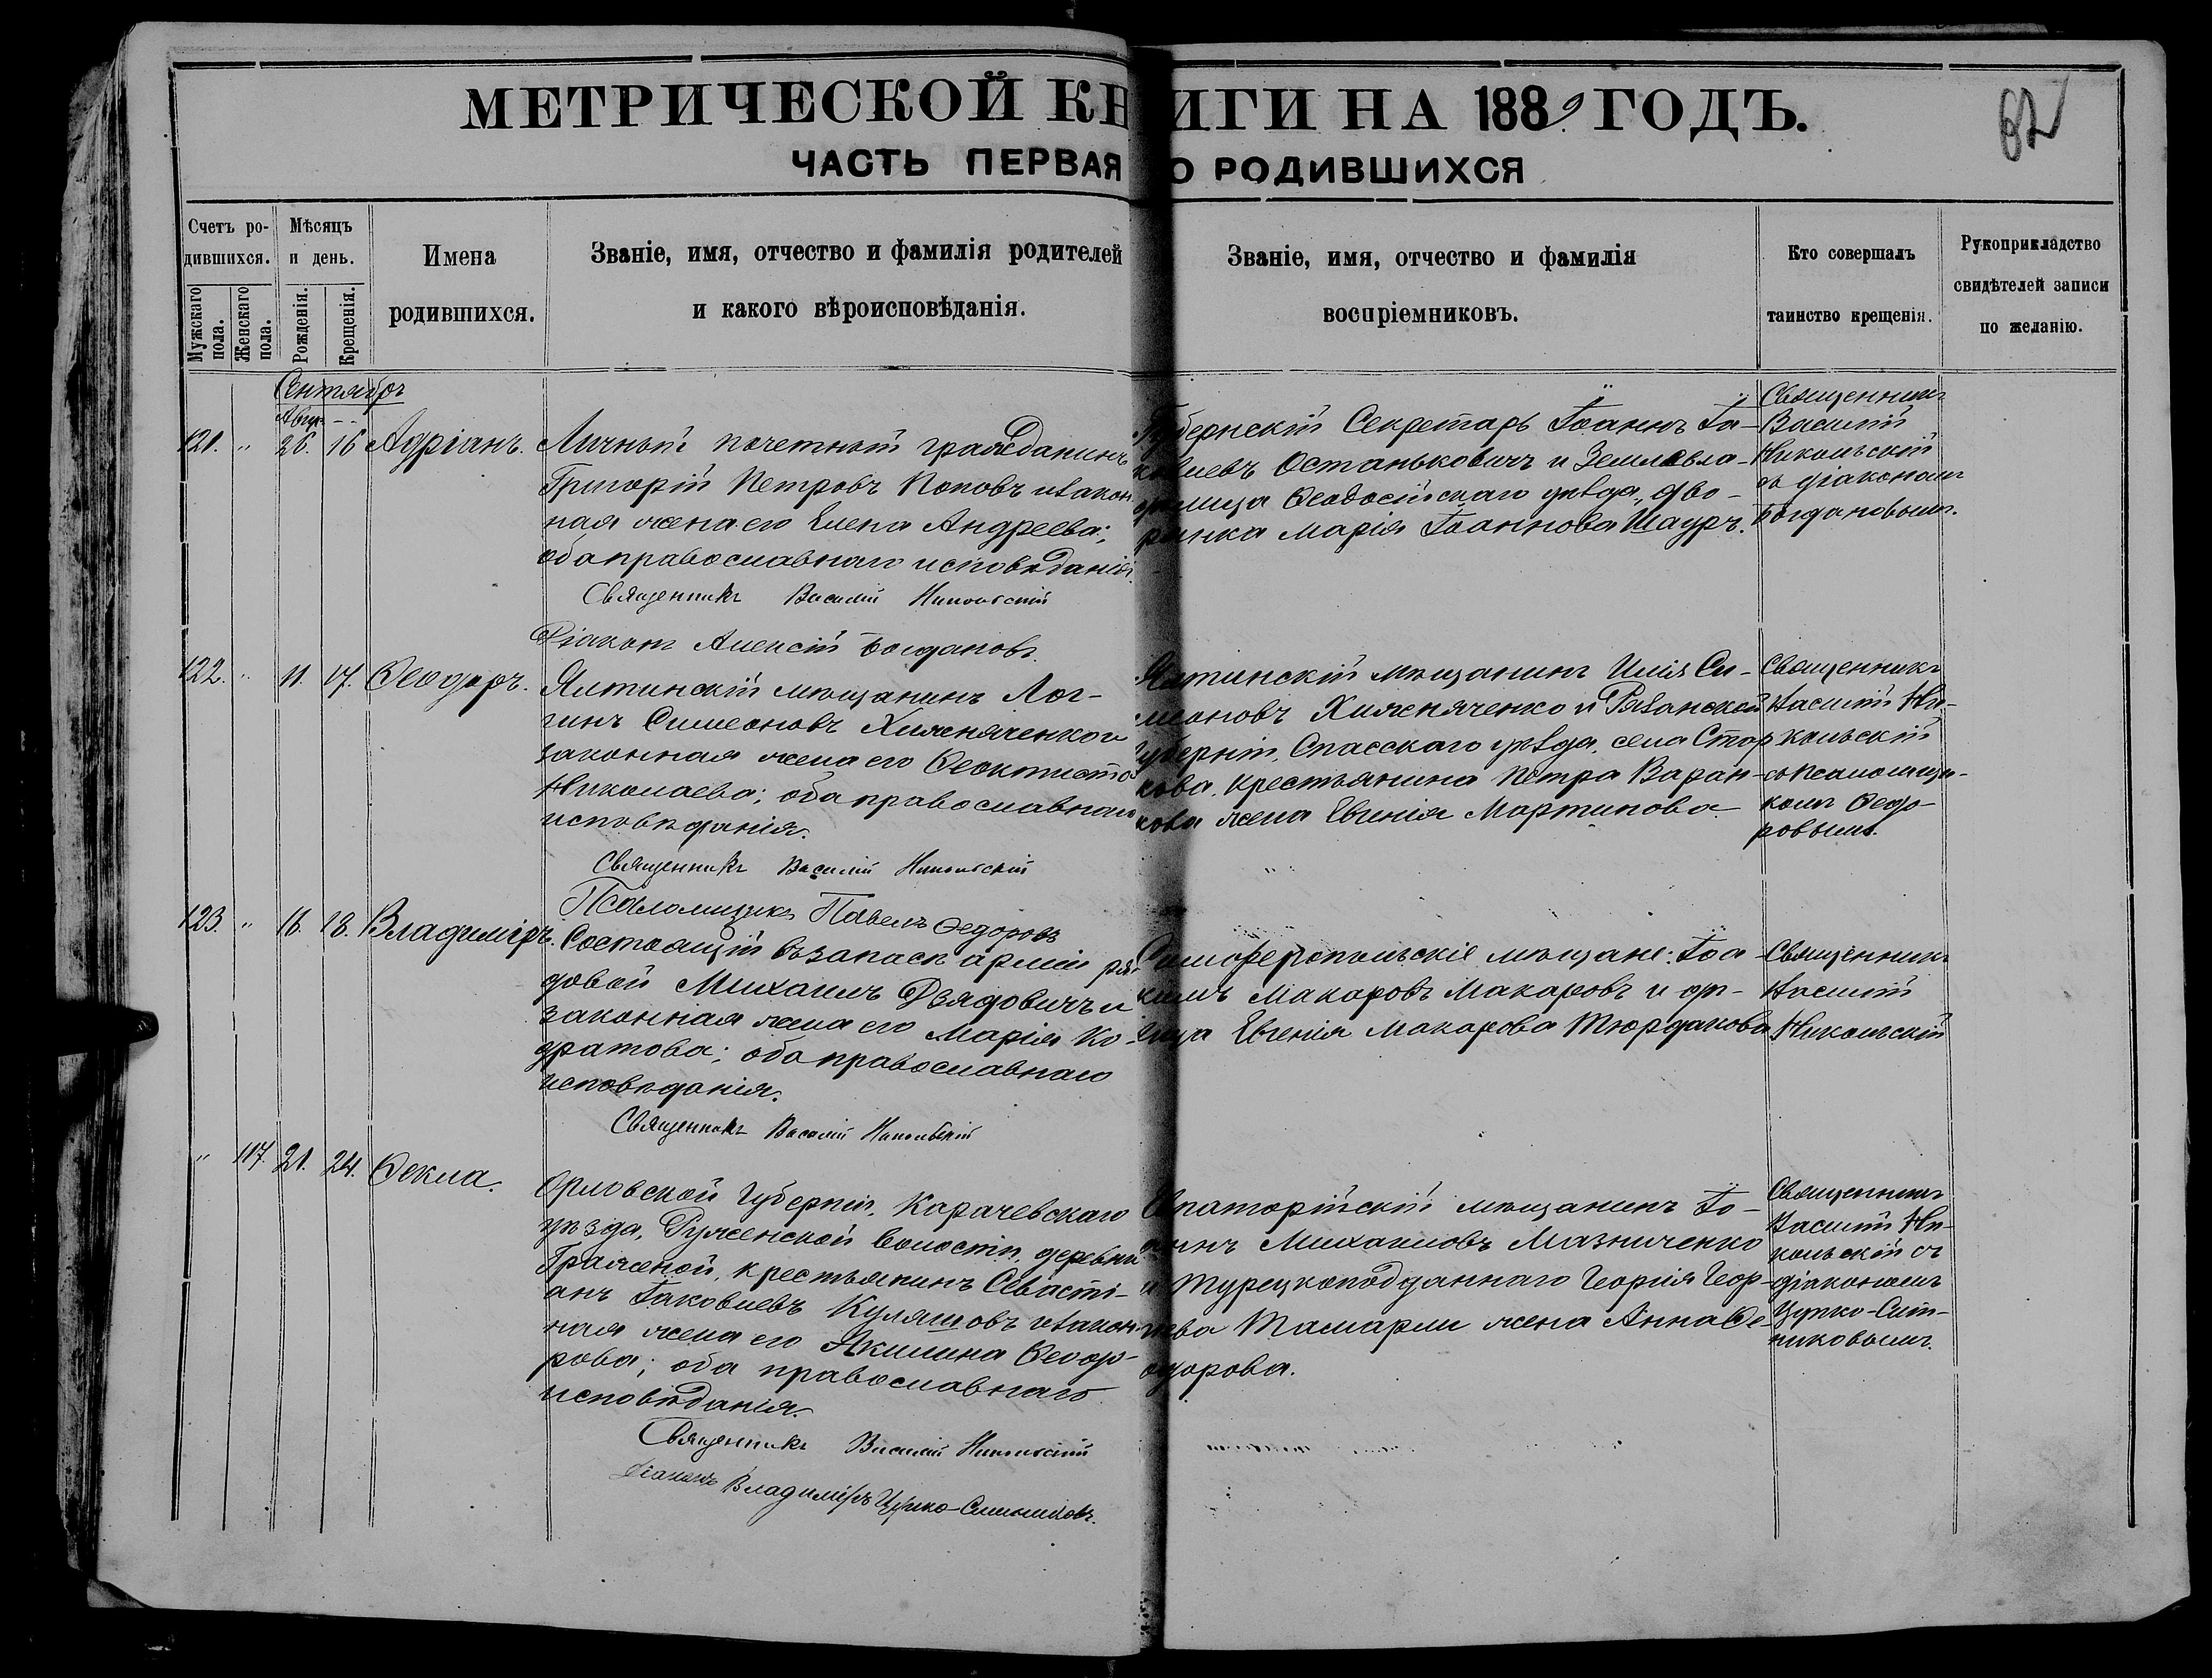 МЕТРИЧЕСКОЙ КНИГИ НА 1889 ГОДЪ.
62
ЧАСТЬ ПЕРВАЯ О РОДИВШИХСЯ
Счетъ родившихся.
Мужскаго пола.
Женскаго пола.
Мѣсяцъ и день.
Рожденія.
Крещенія.
Имена
родившихся.
Званіе, имя, отчество и фамилія родителей
и какого вѣроисповѣданія.
Званіе, имя, отчество и фамилія
воспріемниковъ.
Кто совершалъ
таинство крещенія.
Рукоприкладство
свидѣтелей записи
по желанію.
Сентябрь
Авгу.
121. " 26. 16 Адріанъ.
Личный почетный гражданинъ
Григорій Петровъ Поповъ и закон
ная жена его Елена Андреева;
оба православнаго исповѣданія.
Священникъ Василій Никольскій
Діаконъ Алексій Богдановъ.
Губернскій Секретарь Іоаннъ Іа-
ковлевъ Останьковичъ и Землевла-
дѣлица Ѳеодосійскаго уѣзда, дво-
рянка Марія Іоаннова Шауръ.
Священникъ
Василій
Никольскій
съ діакономъ
Богдановымъ.
122. " 11. 17. Ѳеодоръ.
Ялтинскій мѣщанинъ Лог-
гинъ Симеоновъ Хижняченко и
законная жена его Ѳеоктиста
Николаева; оба православнаго
исповѣданія.
Священникъ Василій Никольскій
Псаломщикъ Павелъ Ѳедоровъ
Ялтинскій мѣщанинъ Илія Си-
меоновъ Хижняченко и Рязанской
губерніи, Спасскаго уѣзда, села
крестьянина Петра Варан-
кова жена Евгенія Мартинова.
Священникъ
Василій Ни-
кольскій
съ псаломщи-
комъ Ѳедо-
ровымъ.
123. " 16. 18. Владиміръ.
Состоящій въ запасѣ арміи ря-
довой Михаилъ Дзядовичъ и
законная жена его Марія Ко-
дратова; оба православнаго
исповѣданія.
Священникъ Василій Никольскій
Симферопольскіе мѣщане: Іоа-
кимъ Макаровъ Макаровъ и дѣ-
вица Евгенія Макарова Тюрдакова
Священникъ
Василій
Никольскій
" 117. 21. 24. Ѳекла.
Орловской губерніи, Карачевскаго
уѣзда, Руженской волости, деревни
крестьянинъ Севасті-
анъ Іаковлевъ Куляшовъ и закон-
ная жена его Акилина Ѳеодо-
рова; оба православнаго
исповѣданія.
Священникъ Василій Никольскій
Діаконъ Владиміръ Цупко-Ситниковъ.
Евпаторійскій мѣщанинъ Іо-
аннъ Михаиловъ Мазниченко
и Турецкоподданнаго Георгія Геор-
гіева Тамарли жена Анна Ѳе-
одорова.
Священникъ
Василій Ни-
кольскій съ
діакономъ
Цупко-Сит-
никовымъ.